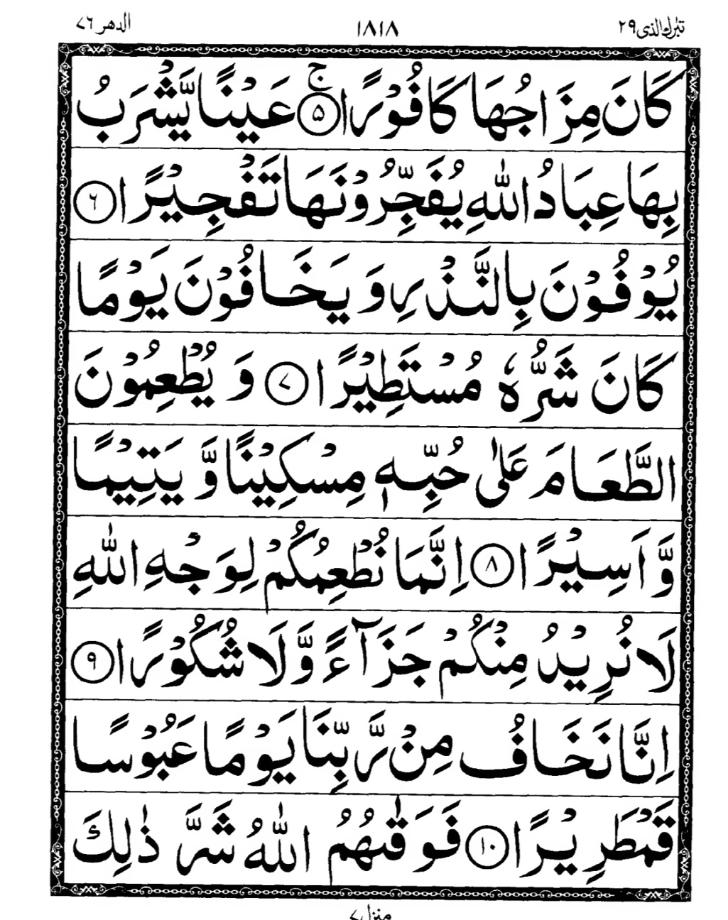 تبٰرك الذی ٢٩
١٨١٨
الدهر ٧٦
كَانَ مِزَاجُهَا كَافُوْرًا ۚ‏﴿۵﴾ عَيْنًا يَّشْرَبُ
بِهَا عِبَادُ اللّٰهِ يُفَجِّرُوْنَهَا تَفْجِيْرًا ﴿٦﴾
يُوْفُوْنَ بِالنَّذْرِ وَ يَخَافُوْنَ يَوْمًا
كَانَ شَرُّهٗ مُسْتَطِيْرًا ﴿٧﴾ وَ يُطْعِمُوْنَ
الطَّعَامَ عَلٰى حُبِّهٖ مِسْكِيْنًا وَّ يَتِيْمًا
وَّ اَسِيْرًا ﴿٨﴾ اِنَّمَا نُطْعِمُكُمْ لِوَجْهِ اللّٰهِ
لَا نُرِيْدُ مِنْكُمْ جَزَآءً وَّ لَا شُكُوْرًا ﴿٩﴾
اِنَّا نَخَافُ مِنْ رَّبِّنَا يَوْمًا عَبُوْسًا
قَمْطَرِيْرًا ﴿١٠﴾ فَوَقٰىهُمُ اللّٰهُ شَرَّ ذٰلِكَ
منزل ٧